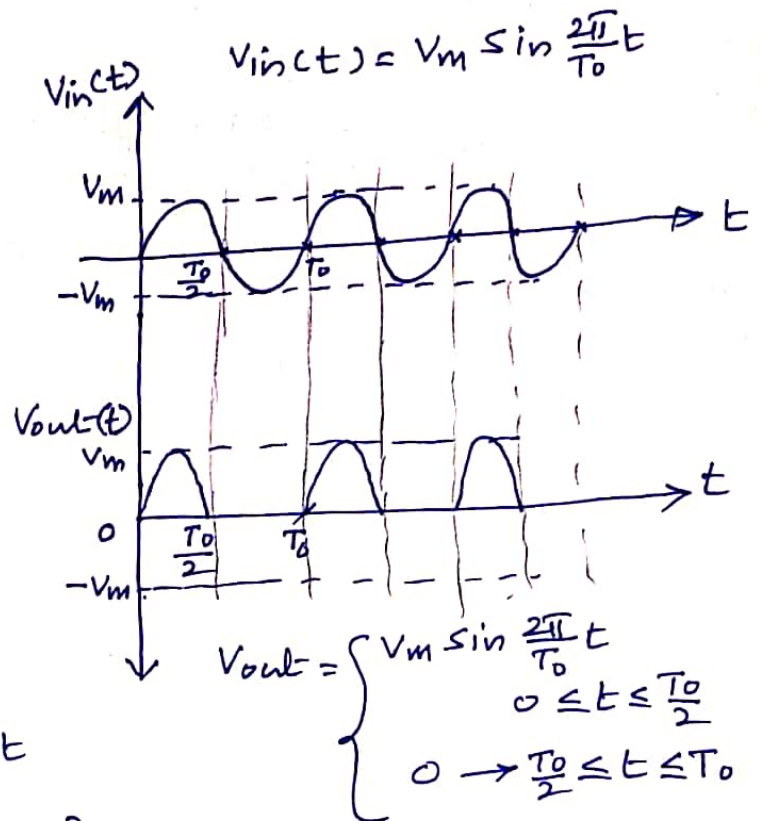 Vin(t) = Vm Sin 2π/T0 t
Vin(t)
Vm
t
T0/2
T0
-Vm
Vout(t)
Vm
t
0
T0/2
T0
-Vm
Vout = { Vm sin 2π/T0 t
0 ≤ t ≤ T0/2
t
0 → T0/2 ≤ t ≤ T0